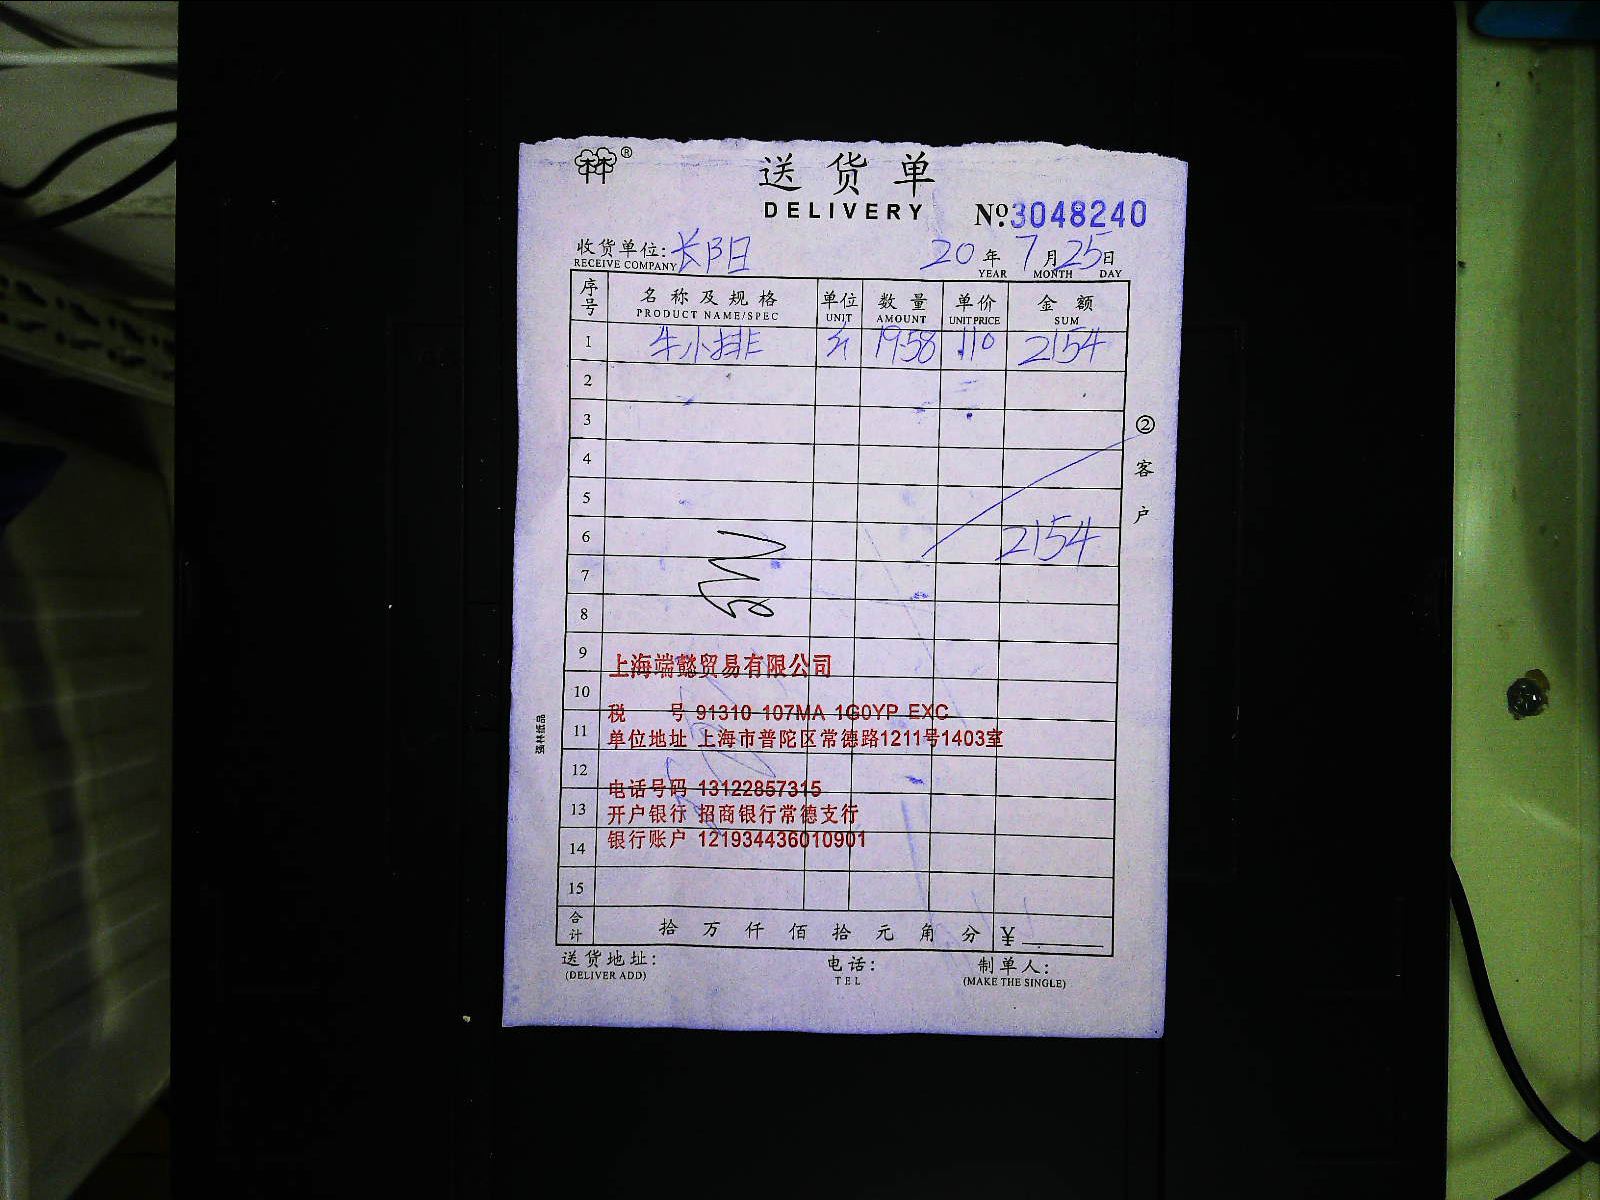 ®
送货单
DELIVERY
№:3048240
收货单位:长阳 20年7月25日
RECEIVE COMPANY YEAR MONTH DAY
序号 名称及规格 单位 数量 单价 金额
PRODUCT NAME/SPEC UNIT AMOUNT UNIT PRICE SUM
1 牛小排 斤 19.58 110 2154
2
3
4
5
6 2154
7
8
9
10
11
12
13
14
15
② 客户
上海端懿贸易有限公司
税 号 91310 107MA 1G0YP EXC
单位地址 上海市普陀区常德路1211号1403室
电话号码 13122857315
开户银行 招商银行常德支行
银行账户 121934436010901
强林纸品
合计 拾 万 仟 佰 拾 元 角 分 ¥
送货地址: 电话: 制单人:
(DELIVER ADD) TEL (MAKE THE SINGLE)